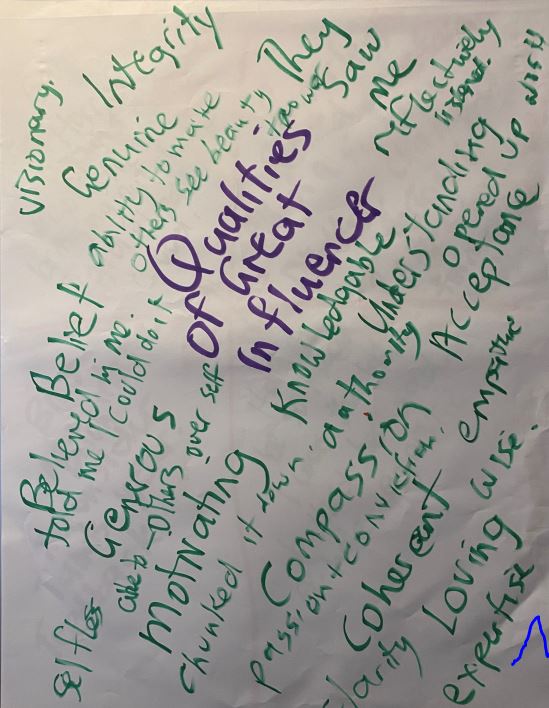 visionary.
Integrity
Genuine
ability to make
others see beauty
They
Saw
me
reflectively
listened.
Qualities
of Great
Influencer
Belief
Believed in me.
told me I could do it
Knowledgable
Understanding
opened up
Acceptance
Generous
others over self
Motivating
chunked it down.
authority
Compassion
passion + conviction.
Coherent
clarity
empathic
wise.
Loving
expertise
selfless